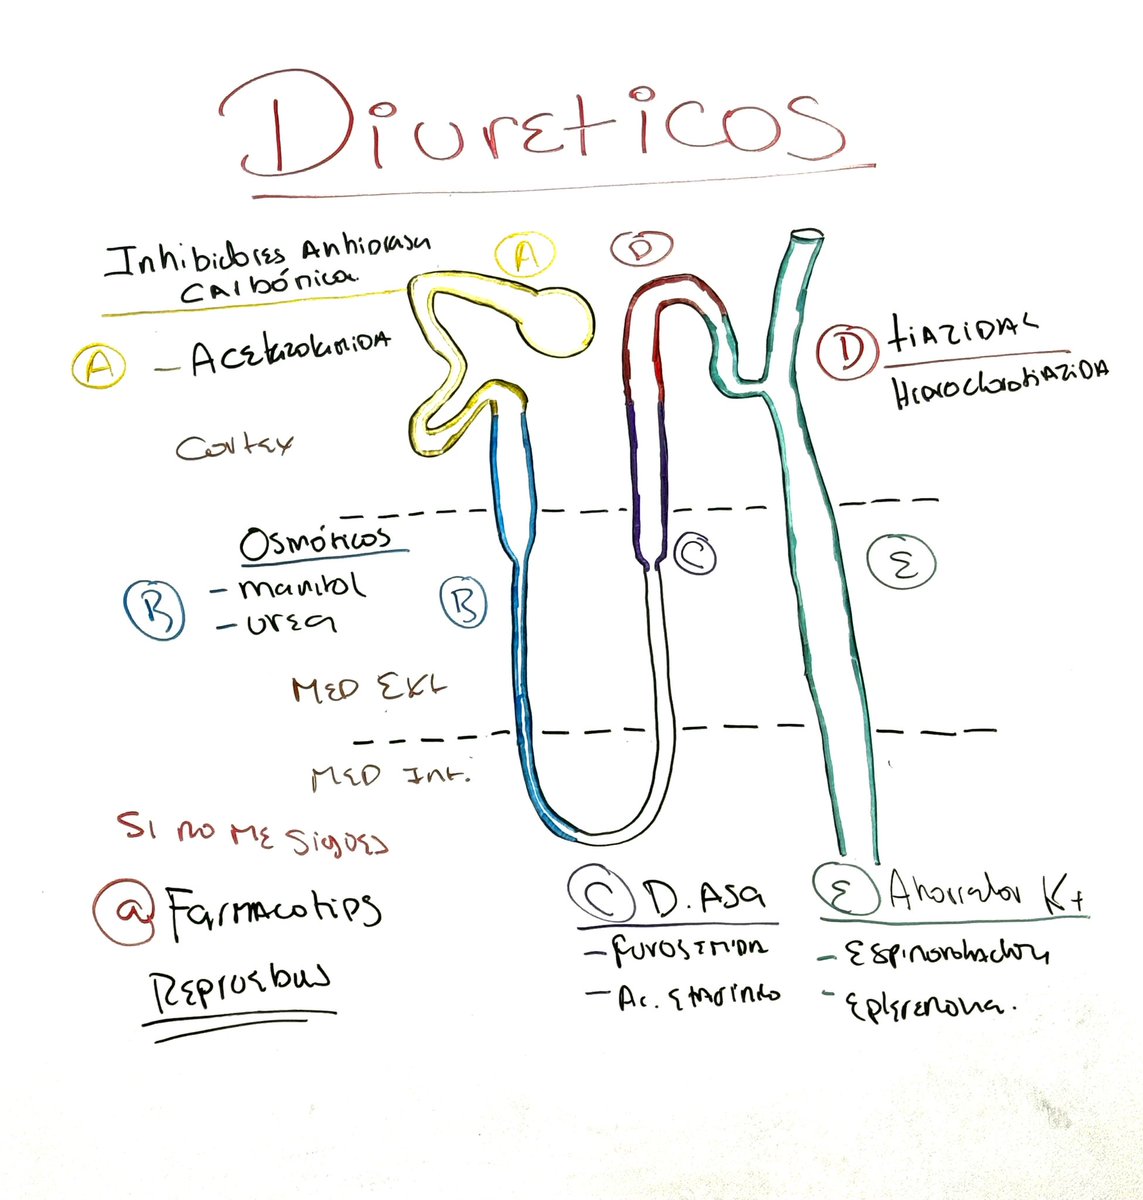 Diureticos
Inhibidores Anhidrasa
Carbónica
A
D
A
- Acetazolamida
D
tiAZIDAS
Hidroclorotiazida
Cortex
Osmóticos
B
- manitol
- urea
B
C
E
MED Ext
MED Int.
SI no ME sigues
@ Farmacotips
Repruebas
C D. Asa
- furosemida
- Ac. etacrinico
E Ahorrador K+
- Espironolactona
- Eplerenona.